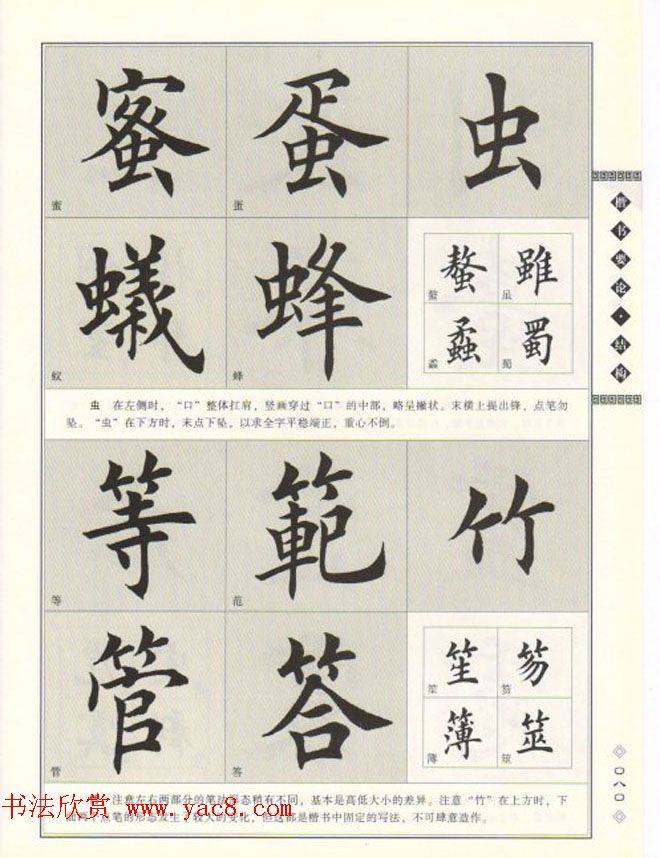 蜜 蛋 虫
蜜 蛋
蟻 蜂
蚁 蜂
螯 雖
螯 虽
蟊 蜀
蟊 蜀
虫 在左侧时，“口”整体扛肩，竖画穿过“口”的中部，略呈撇状。末横上提出锋，点笔勿
坠。“虫”在下方时，末点下坠，以求全字平稳端正，重心不倒。
等 範 竹
等 范
管 答
管 答
笙 笏
笙 笏
簿 筮
簿 筮
注意左右两部分的笔画形态稍有不同，基本是高低大小的差异。注意“竹”在上方时，下
面两个点笔的形态发生了较大的变化，但这都是楷书中固定的写法，不可肆意造作。
楷书要论·结构
〇八〇
书法欣赏 www.yac8.com